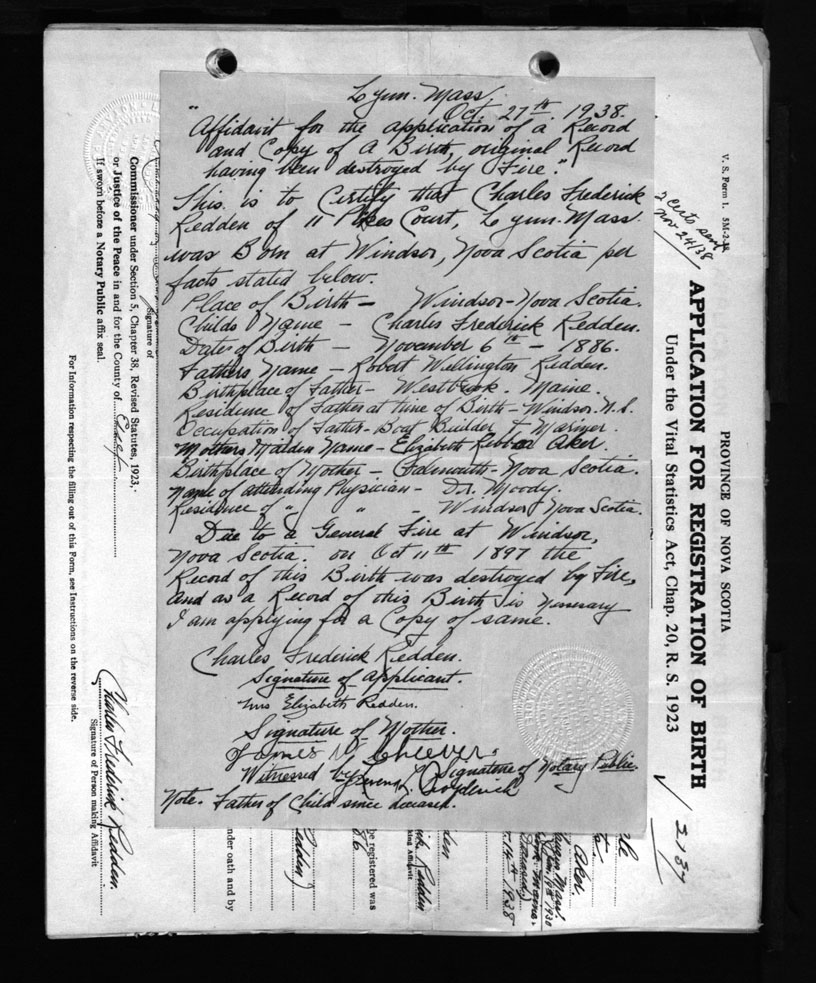 Lynn. Mass.
Oct. 27th. 1938.
"Affidavit for the application of a Record
and Copy of a Birth, original Record
having been destroyed by Fire."
This is to Certify that Charles Frederick
Redden of 11 Court, Lynn. Mass.
was Born at Windsor, Nova Scotia per
facts stated below.
Place of Birth - Windsor - Nova Scotia.
Childs Name - Charles Frederick Redden.
Date of Birth - November 6th - 1886.
Fathers Name - Robert Wellington Redden.
Birthplace of Father - Westbrook - Maine.
Residence of Father at time of Birth - Windsor. N.S.
Occupation of Father - Boat Builder & Mariner.
Mothers Maiden Name - Elizabeth Aker
Birthplace of Mother - Falmouth - Nova Scotia.
Name of Attending Physician - Dr. Moody.
Residence of " " - Windsor Nova Scotia.
Due to a General Fire at Windsor,
Nova Scotia. on Oct 11th 1897 the
Record of this Birth was destroyed by Fire,
and as a Record of this Birth is Nessesary
I am applying for a Copy of same.
Charles Frederick Redden.
Signature of Applicant.
Mrs Elizabeth Redden.
Signature of Mother.
James W. Cheever.
Signature of Notary Public.
Witnessed by L. Broderick
Note. Father of Child since deceased.
V. S. Form 1. 5M-2-38
2 certs sent
Nov 24/38
PROVINCE OF NOVA SCOTIA
APPLICATION FOR REGISTRATION OF BIRTH
Under the Vital Statistics Act, Chap. 20, R. S. 1923
2137
Aker
1930
Maine.
Deceased
14th 1938
Redden
king Affidavit
be registered was
86
Redden)
nder oath and by
Signature of
Commissioner under Section 5, Chapter 38, Revised Statutes, 1923,
or Justice of the Peace in and for the County of Essex
If sworn before a Notary Public affix seal.
Charles Frederick Redden.
Signature of Person making Affidavit
For Information respecting the filling out of this Form, see Instructions on the reverse side.